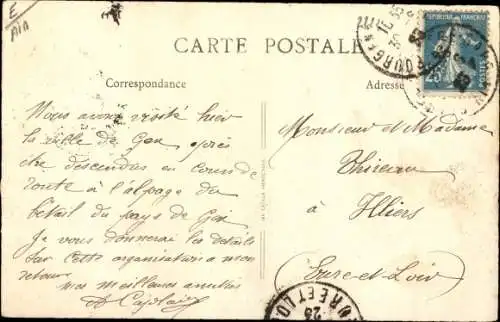 E
AIA
CARTE POSTALE
Correspondance
Adresse
REPUBLIQUE FRANÇAISE
25
Nous avons visité hier
la ville de Gex, après
être descendus en cours de
route à l'alpage du
bétail du pays de Gex
Je vous donnerai les détails
sur cette organisation à mon
retour
mes meilleures amitiés
Monsieur et Madame
Thireau
à Illiers
Eure-et-Loir
EURE ET LOIR
25